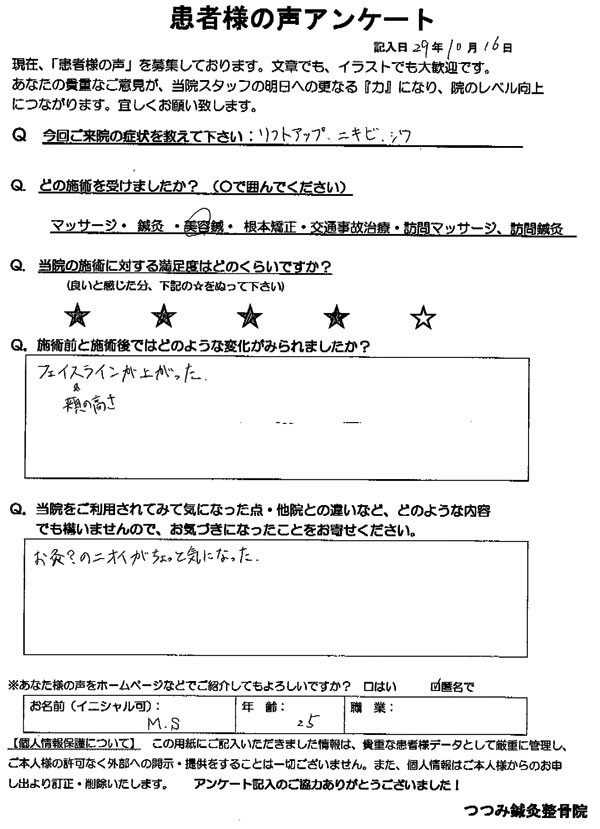 患者様の声アンケート
記入日 29年 10月 16日
現在、「患者様の声」を募集しております。文章でも、イラストでも大歓迎です。
あなたの貴重なご意見が、当院スタッフの明日への更なる『力』になり、院のレベル向上
につながります。宜しくお願い致します。
Q 今回ご来院の症状を教えて下さい：リフトアップ、ニキビ、シワ
Q. どの施術を受けましたか？（〇で囲んでください）
マッサージ・ 鍼灸 ・美容鍼・ 根本矯正・交通事故治療・訪問マッサージ、訪問鍼灸
Q. 当院の施術に対する満足度はどのくらいですか？
（良いと感じた分、下記の☆をぬって下さい）
★ ★ ★ ★ ☆
Q. 施術前と施術後ではどのような変化がみられましたか？
フェイスラインが上がった.
&
頬の高さ
Q. 当院をご利用されてみて気になった点・他院との違いなど、どのような内容
でも構いませんので、お気づきになったことをお寄せください。
お灸？のニオイがちょっと気になった.
※あなた様の声をホームページなどでご紹介してもよろしいですか？ □はい ☑匿名で
お名前（イニシャル可）： 年 齢： 職 業：
M.S 25
【個人情報保護について】 この用紙にご記入いただきました情報は、貴重な患者様データとして厳重に管理し、
ご本人様の許可なく外部への開示・提供をすることは一切ございません。また、個人情報はご本人様からのお申
し出より訂正・削除いたします。 アンケート記入のご協力ありがとうございました！
つつみ鍼灸整骨院